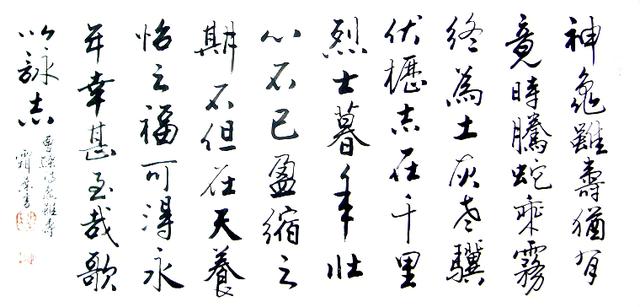 神龜雖壽猶有
竟時騰蛇乘霧
終為土灰老驥
伏櫪志在千里
烈士暮年壯
心不已盈縮之
期不但在天養
怡之福可得永
年幸甚至哉歌
以詠志
曹操詩龜雖壽
書